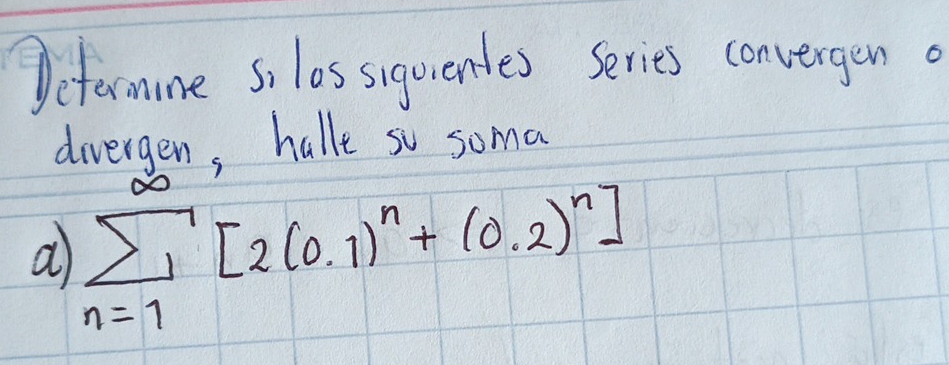 TEMA
Determine si las siguientes series convergen o
divergen, halle su soma
a) ∞∑n=1 [2(0.1)^n + (0.2)^n]